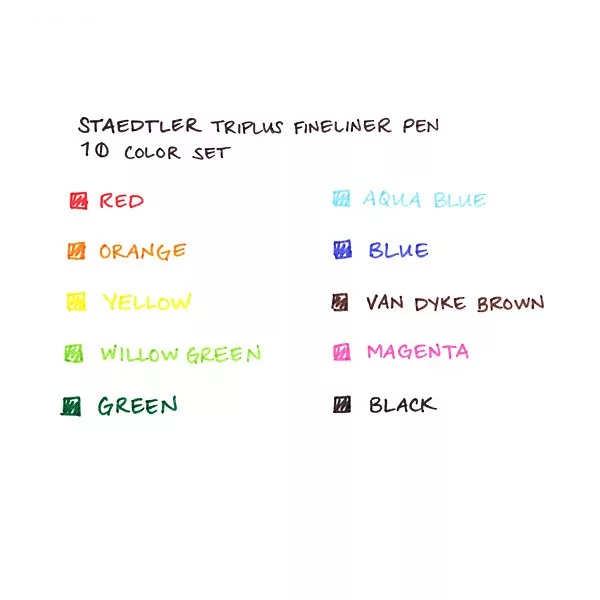 STAEDTLER TRIPLUS FINELINER PEN
10 COLOR SET
RED
ORANGE
YELLOW
WILLOW GREEN
GREEN
AQUA BLUE
BLUE
VAN DYKE BROWN
MAGENTA
BLACK